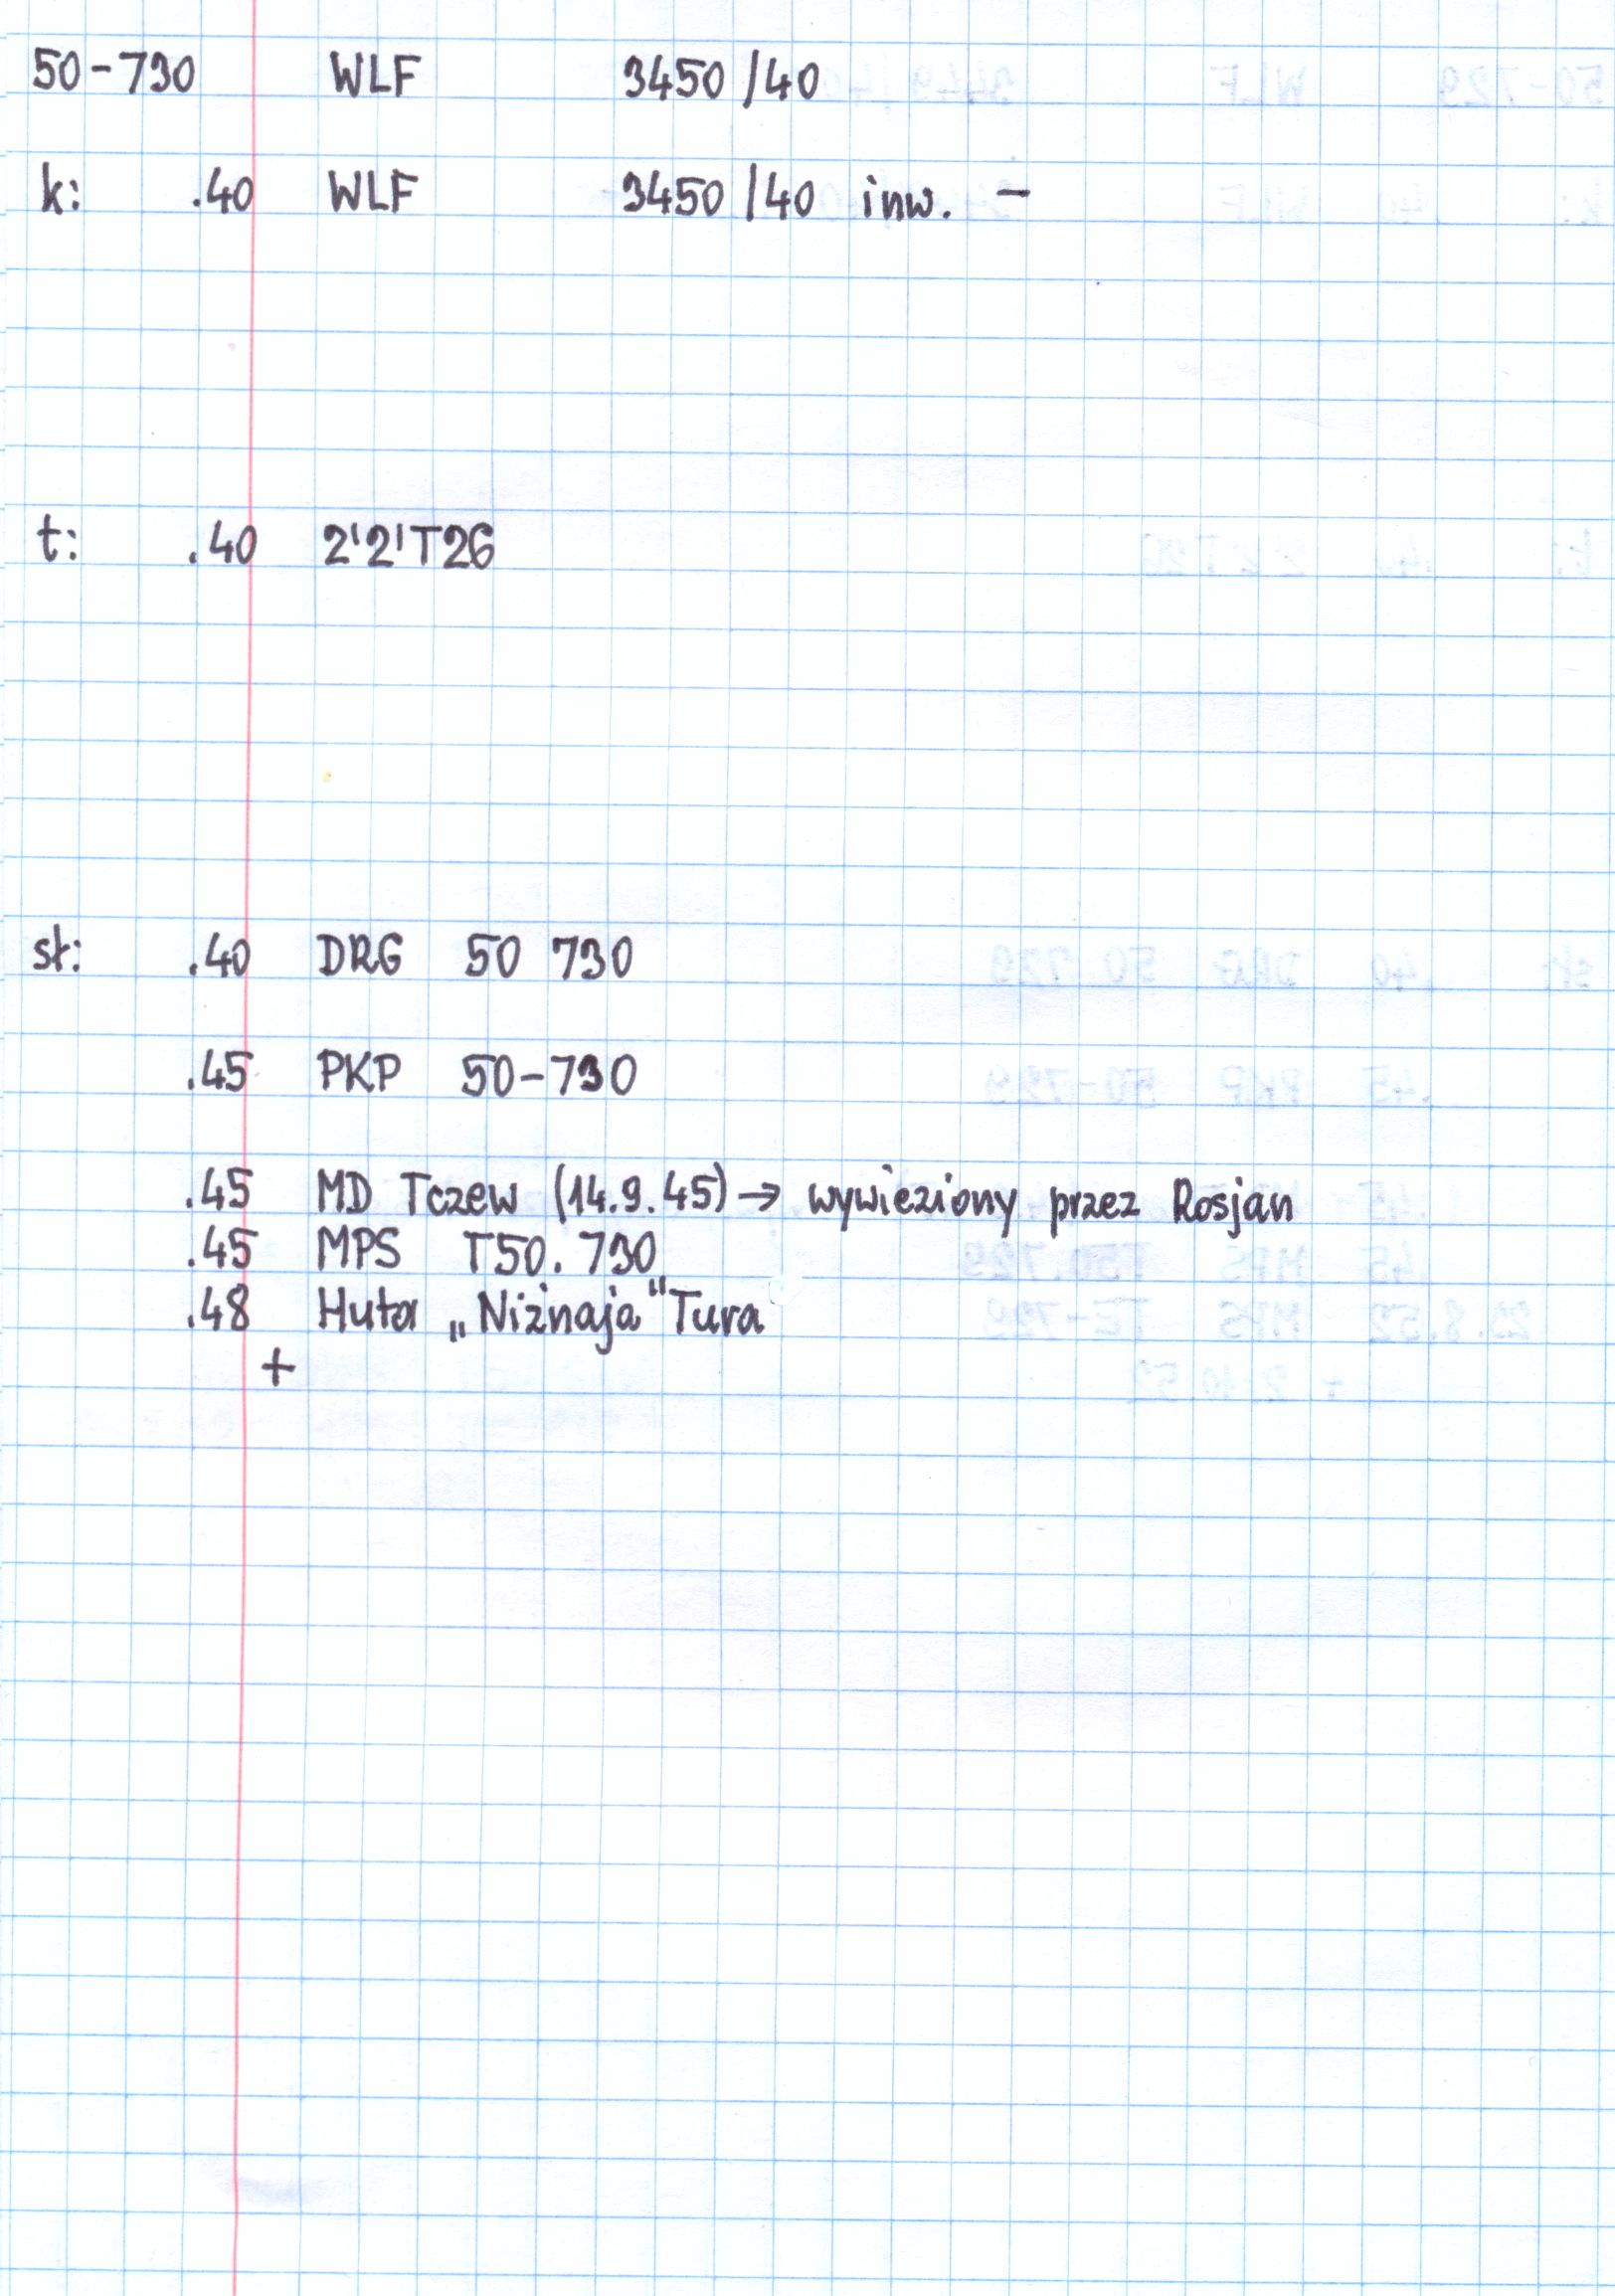 50-730 WLF 3450/40
k: .40 WLF 3450/40 inw. –
t: .40 2'2'T26
st: .40 DRG 50 730
.45 PKP 50-730
.45 MD Tczew (14.9.45) → wywieziony przez Rosjan
.45 MPS T50.730
.48 Huta „Niżnaja" Tura
+